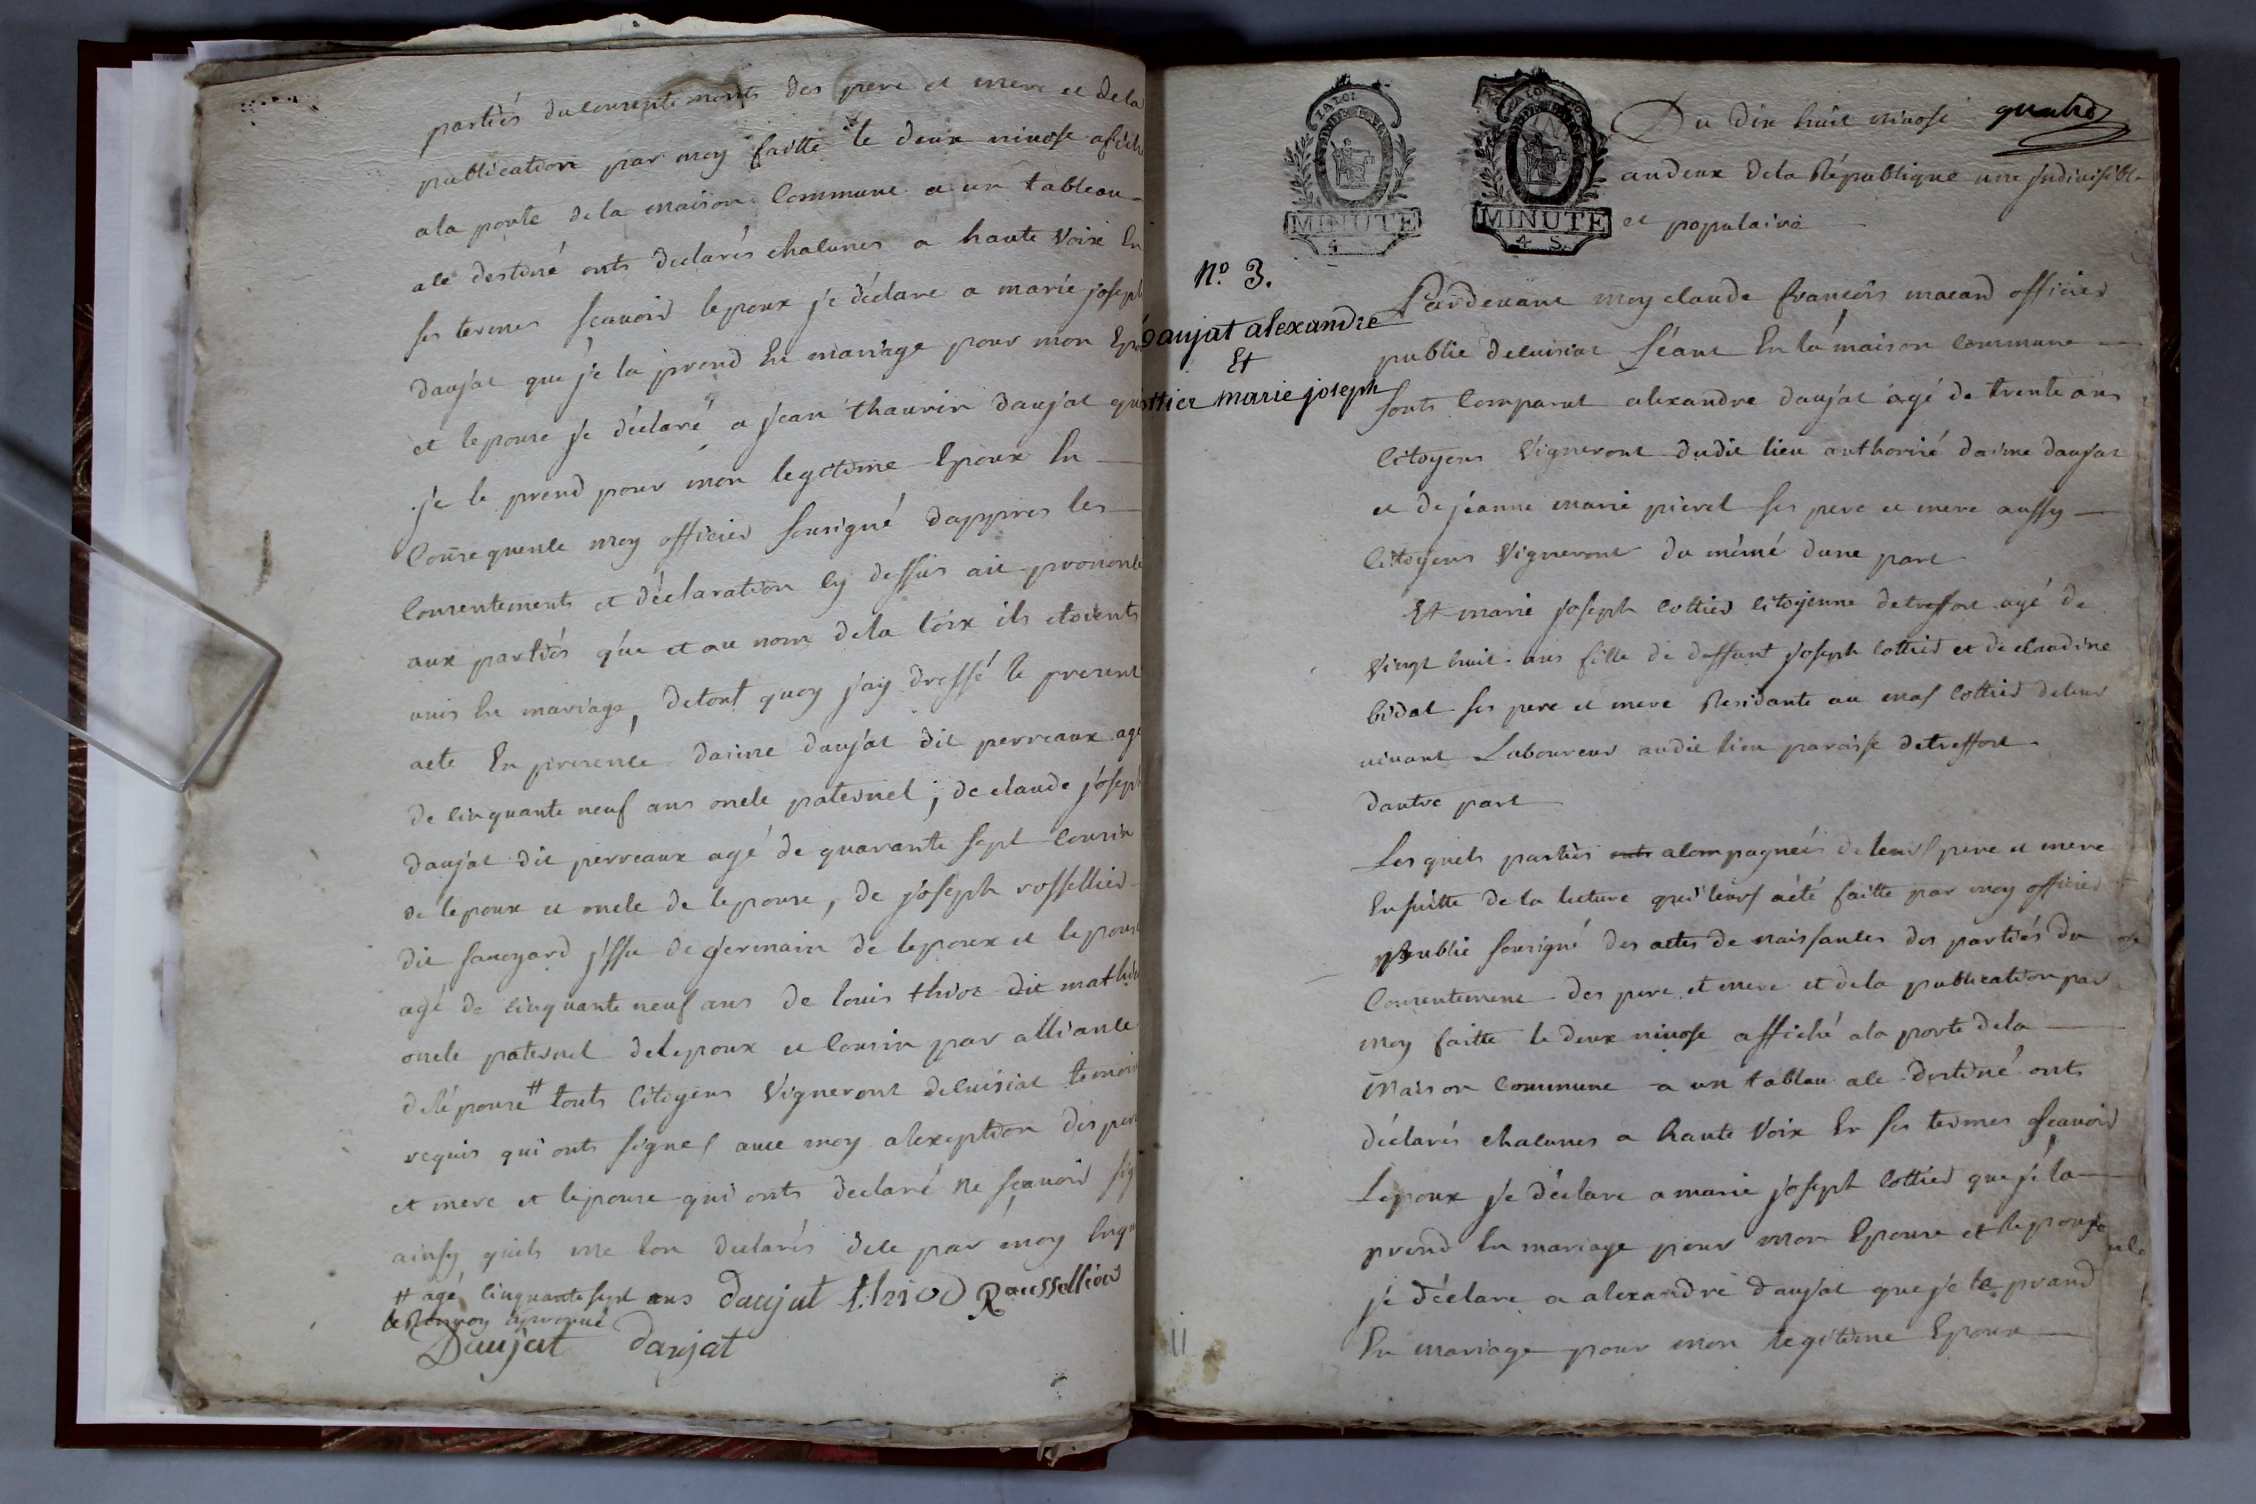 partiés du consentements des pere et mere et dela
publication par moy faitte le deux nivose afiché
ala porte dela maison Commune a un tableau
ale destiné onts declarés chacunes a haute Voixe En
ses termes scauoir lepoux je déclare a marie joseph
daujat que je la prend En mariage pour mon Epouse
et lepouse je déclaré a jean thaurin daujat que
je le prend pour mon legitime Epoux En
Consequence moy officier sousigné dappres les
Consentements et déclaration cy dessus aie prononcé
aux partiés que et au nom dela loix ils etoients
unis En mariage, detout quoy jay dressé le present
acte En presence daime daujat dit perreaux agé
de cinquante neuf ans oncle paternel; de claude joseph
daujat dit perreaux agé de quarante sept cousin
de lepoux et oncle de lepouse, de joseph rossellier
dit sauoyard jssu de germain de lepoux et lepouse
agé de cinquante neuf ans de louis thior dit mathieu
oncle paternel delepoux et Cousin par alliance
delépouse # touts Citoyens Vigneront decuisiat temoins
requis qui onts signes auec moy alexeption des pere
et mere et lepouse qui onts declaré ne scauoir sig
ainsy quils me lon declarés dece par moy Enquis
# agé cinquante sept ans daujat thiod Roussellier
le Renvoy aprouué
Daujat daujat
Du dix huit nivose quatre
andeux dela République une jndiuisible
et populaire
LA LOI
MINUTE
4 S.
MINUTE
4 S.
N.º 3.
Daujat alexandre
Et
cottier marie joseph
Pardeuant moy claude francois macard officier
public decuisiat séant En la maison Commune
sonts Comparut alexandre daujat agé de trente ans
Citoyens Vigneront dudit lieu authorisé daime daujat
et de jéanne marie pierel ses pere et mere aussy
Citoyens Vigneront du mémé dune part
Et marie joseph Cottier Citoyenne detreffort agé de
Vingt huit ans fille de deffunt joseph Cottier et de claudine
bidal ses pere et mere Residante au mas Cottier deleur
uivant Laboureur audit lieu paroisse detreffort
dautre part
Lesquels partiés onts acompagneés de leurs pere et mere
Ensuitte de la lecture qui leurs aété faitte par moy officier
public sousigné des actes de naissances des partiés du
Consentement des pere et mere et dela publication par
moy faitte le deux nivose affiché ala porte dela
Maison Commune a un tableau ale destiné onts
déclarés chacunes a haute Voix En ses termes scauoir
Lepoux je déclare a marie joseph Cottier que je la
prend En mariage pour mon Epouse et lepouse
je déclare a alexandre daujat que je le prand
En mariage pour mon legitime Epoux
11